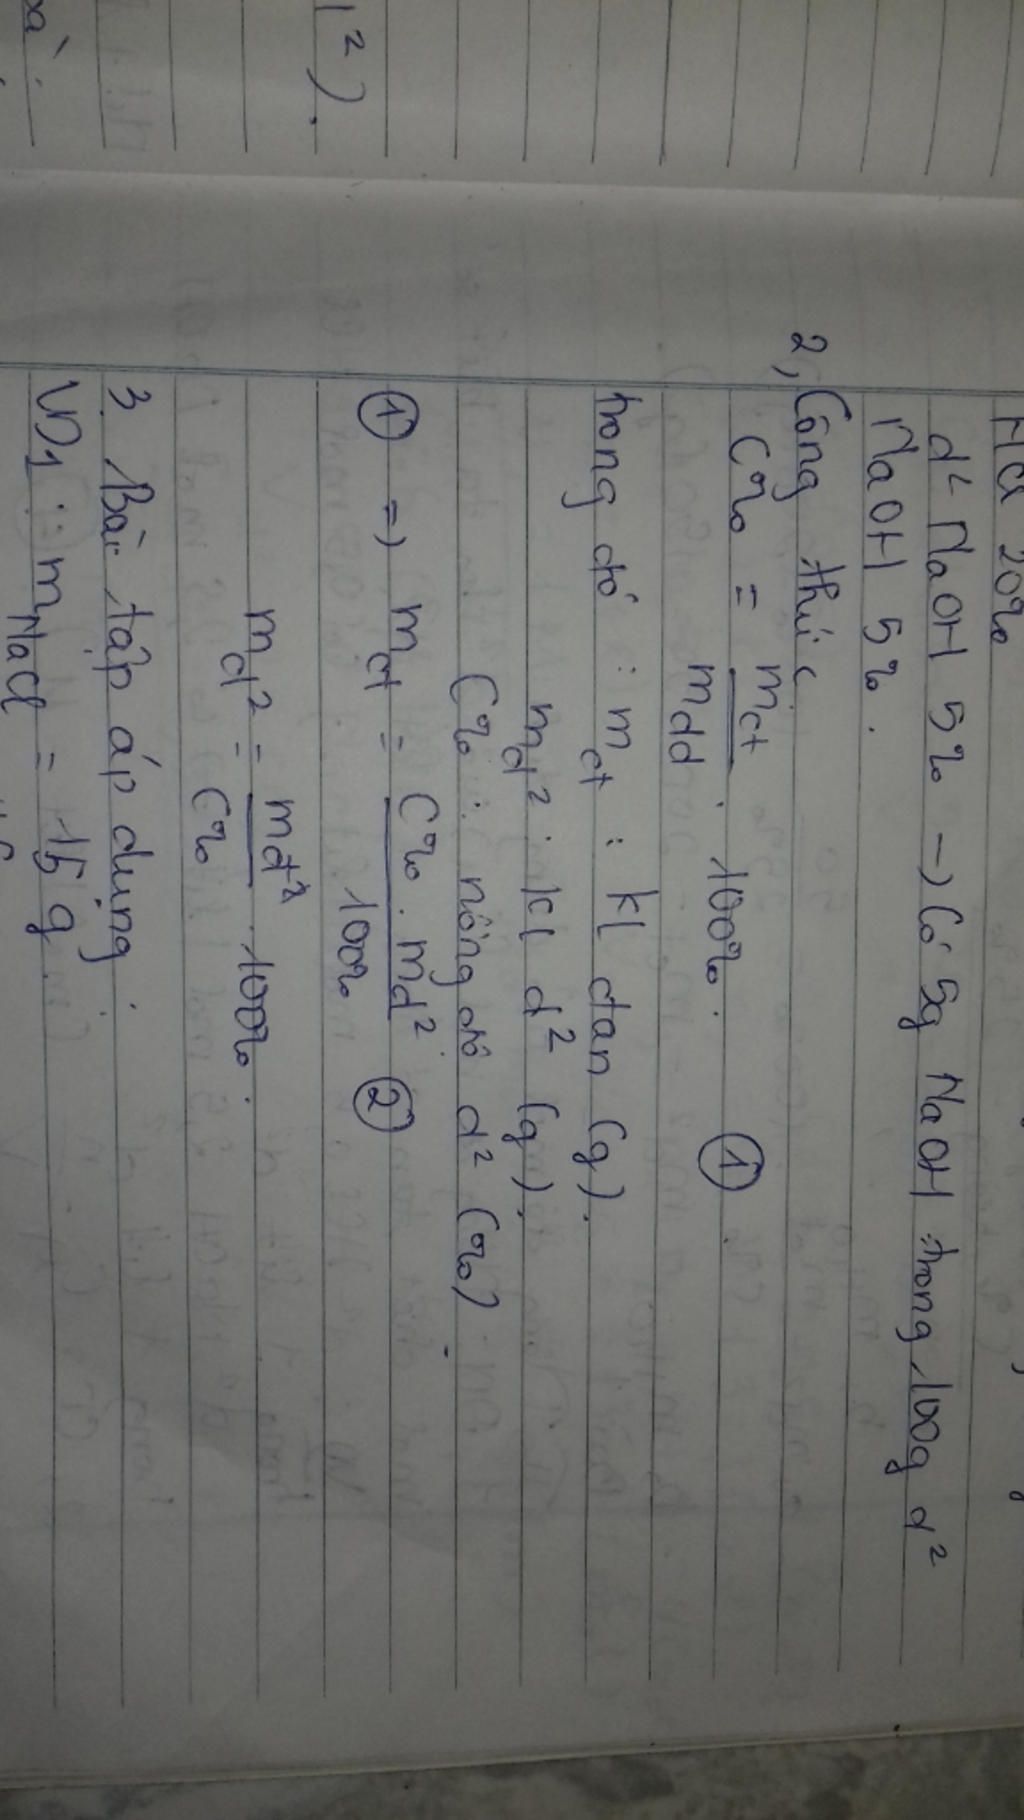 l²).
HCl 20%
d² NaOH 5% → Có 5g NaOH trong 100g d²
NaOH 5%.
2, Công thức
C% = mct / mdd . 100%. ①
trong đó : mct : kl tan (g).
md² : kl d² (g).
C% : nồng độ d² (%)
① => mct = C% . md² / 100% ②
md² = md² / C% . 100%.
3 Bài tập áp dụng.
VD1 : mNaCl = 15 g